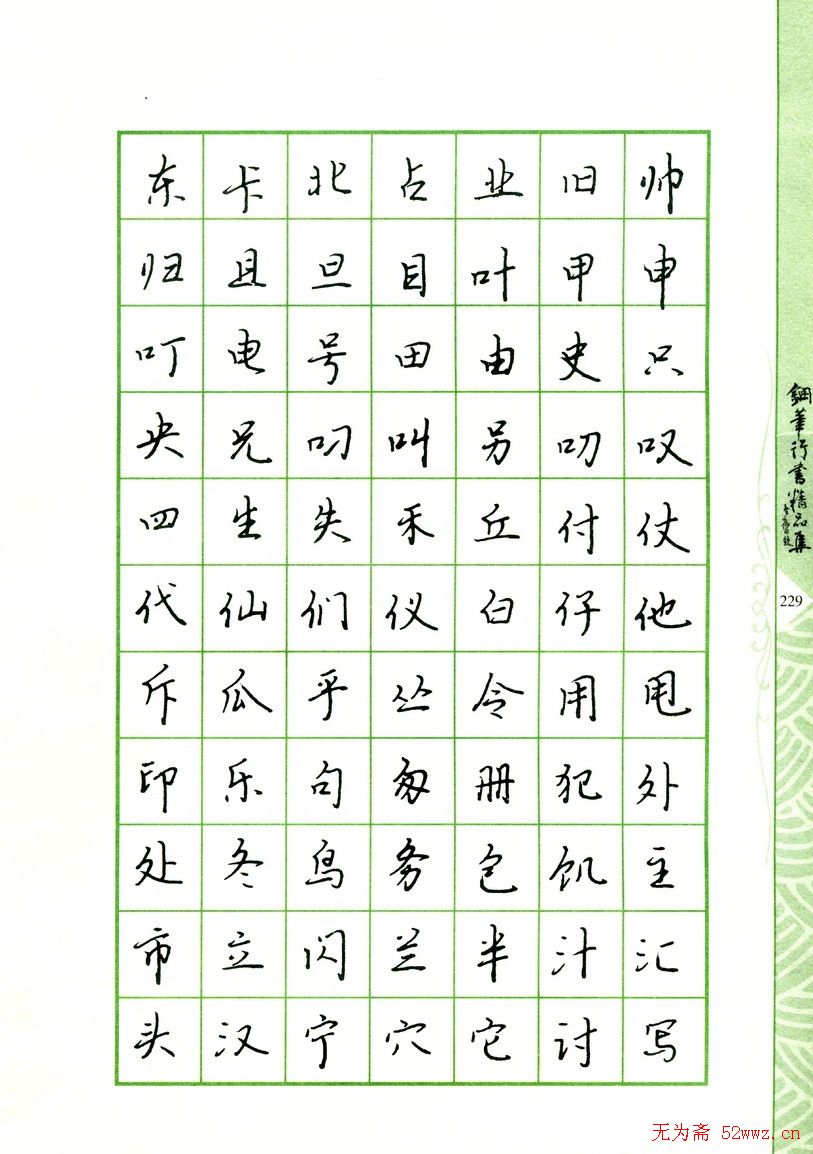 东卡北占业旧帅
归且旦目叶甲申
叮电号田由史只
央兄叼叫另叨叹
四生失禾丘付仗
代仙们仪白仔他
斥瓜乎丛令用甩
印乐句匆册犯外
处冬鸟务包饥主
市立闪兰半汁汇
头汉宁穴它讨写
鋼筆行書精品集
229
无为斋 52wwz.cn